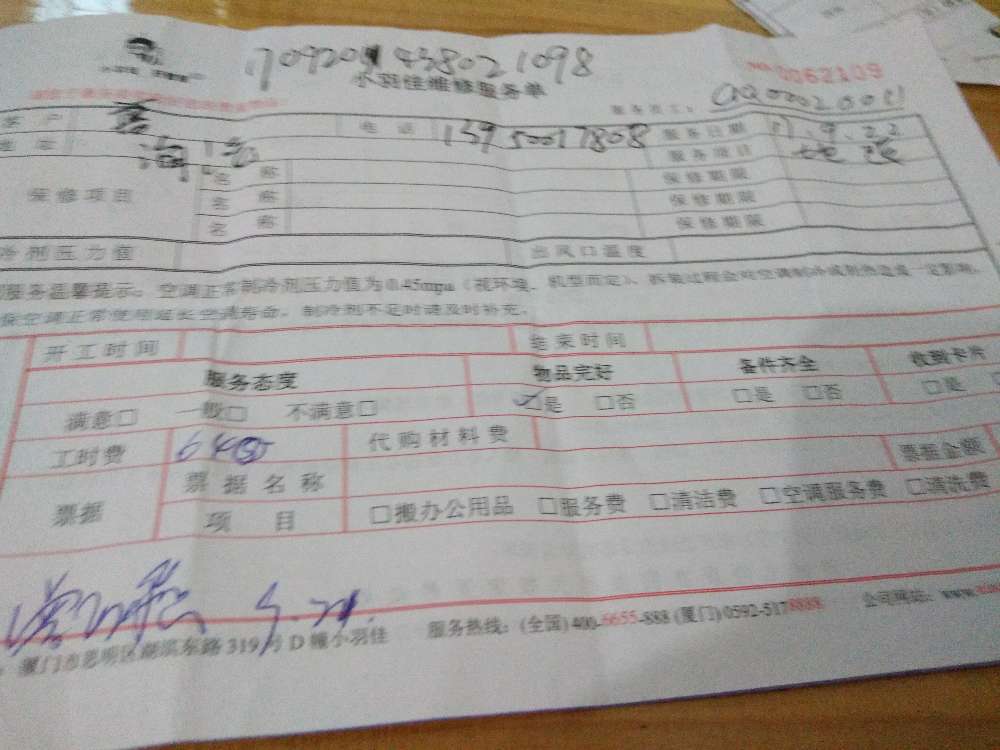 170920143802109​8
小羽佳维修服务单
No 0062109
服务技工:
客户
电话 13950017808 服务日期 17.9.22
地址 服务项目
保修项目 名称 保修期限
名称 保修期限
名称 保修期限
冷剂压力值 出风口温度
服务温馨提示:空调正常制冷剂压力值为0.45mpa(视环境、机型而定)、拆装过程会对空调制冷或制热造成一定影响,
保空调正常使用延长空调寿命,制冷剂不足时请及时补充。
开工时间 结束时间
服务态度 物品完好 备件齐全 收到卡片
满意□ 一般□ 不满意□ ☑是 □否 □是 □否 □是
工时费 640 代购材料费
票据 票据名称 票据金额
项目 □搬办公用品 □服务费 □清洁费 □空调服务费 □清洗费
厦门市思明区湖滨东路319号D幢小羽佳 服务热线:(全国)400-6655-888(厦门)0592-5178888 公司网站:www.